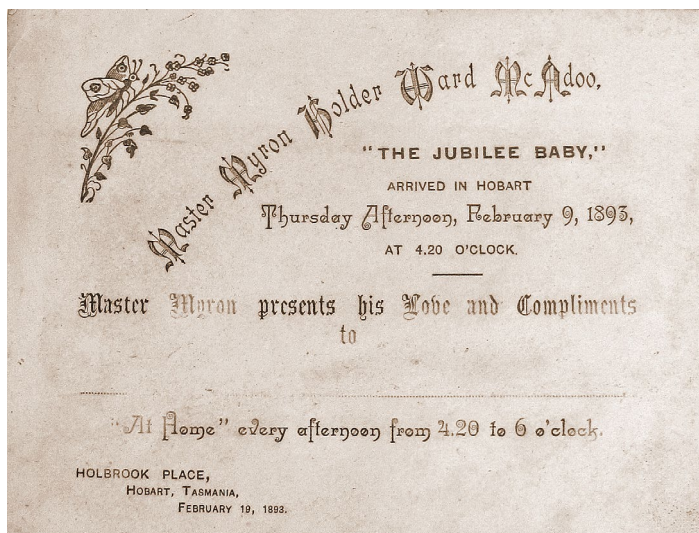 Master Myron Holder Ward McAdoo,
"THE JUBILEE BABY,"
ARRIVED IN HOBART
Thursday Afternoon, February 9, 1893,
AT 4.20 O'CLOCK.
Master Myron presents his Love and Compliments
to
"At Home" every afternoon from 4.20 to 6 o'clock.
HOLBROOK PLACE,
HOBART, TASMANIA,
FEBRUARY 19, 1893.